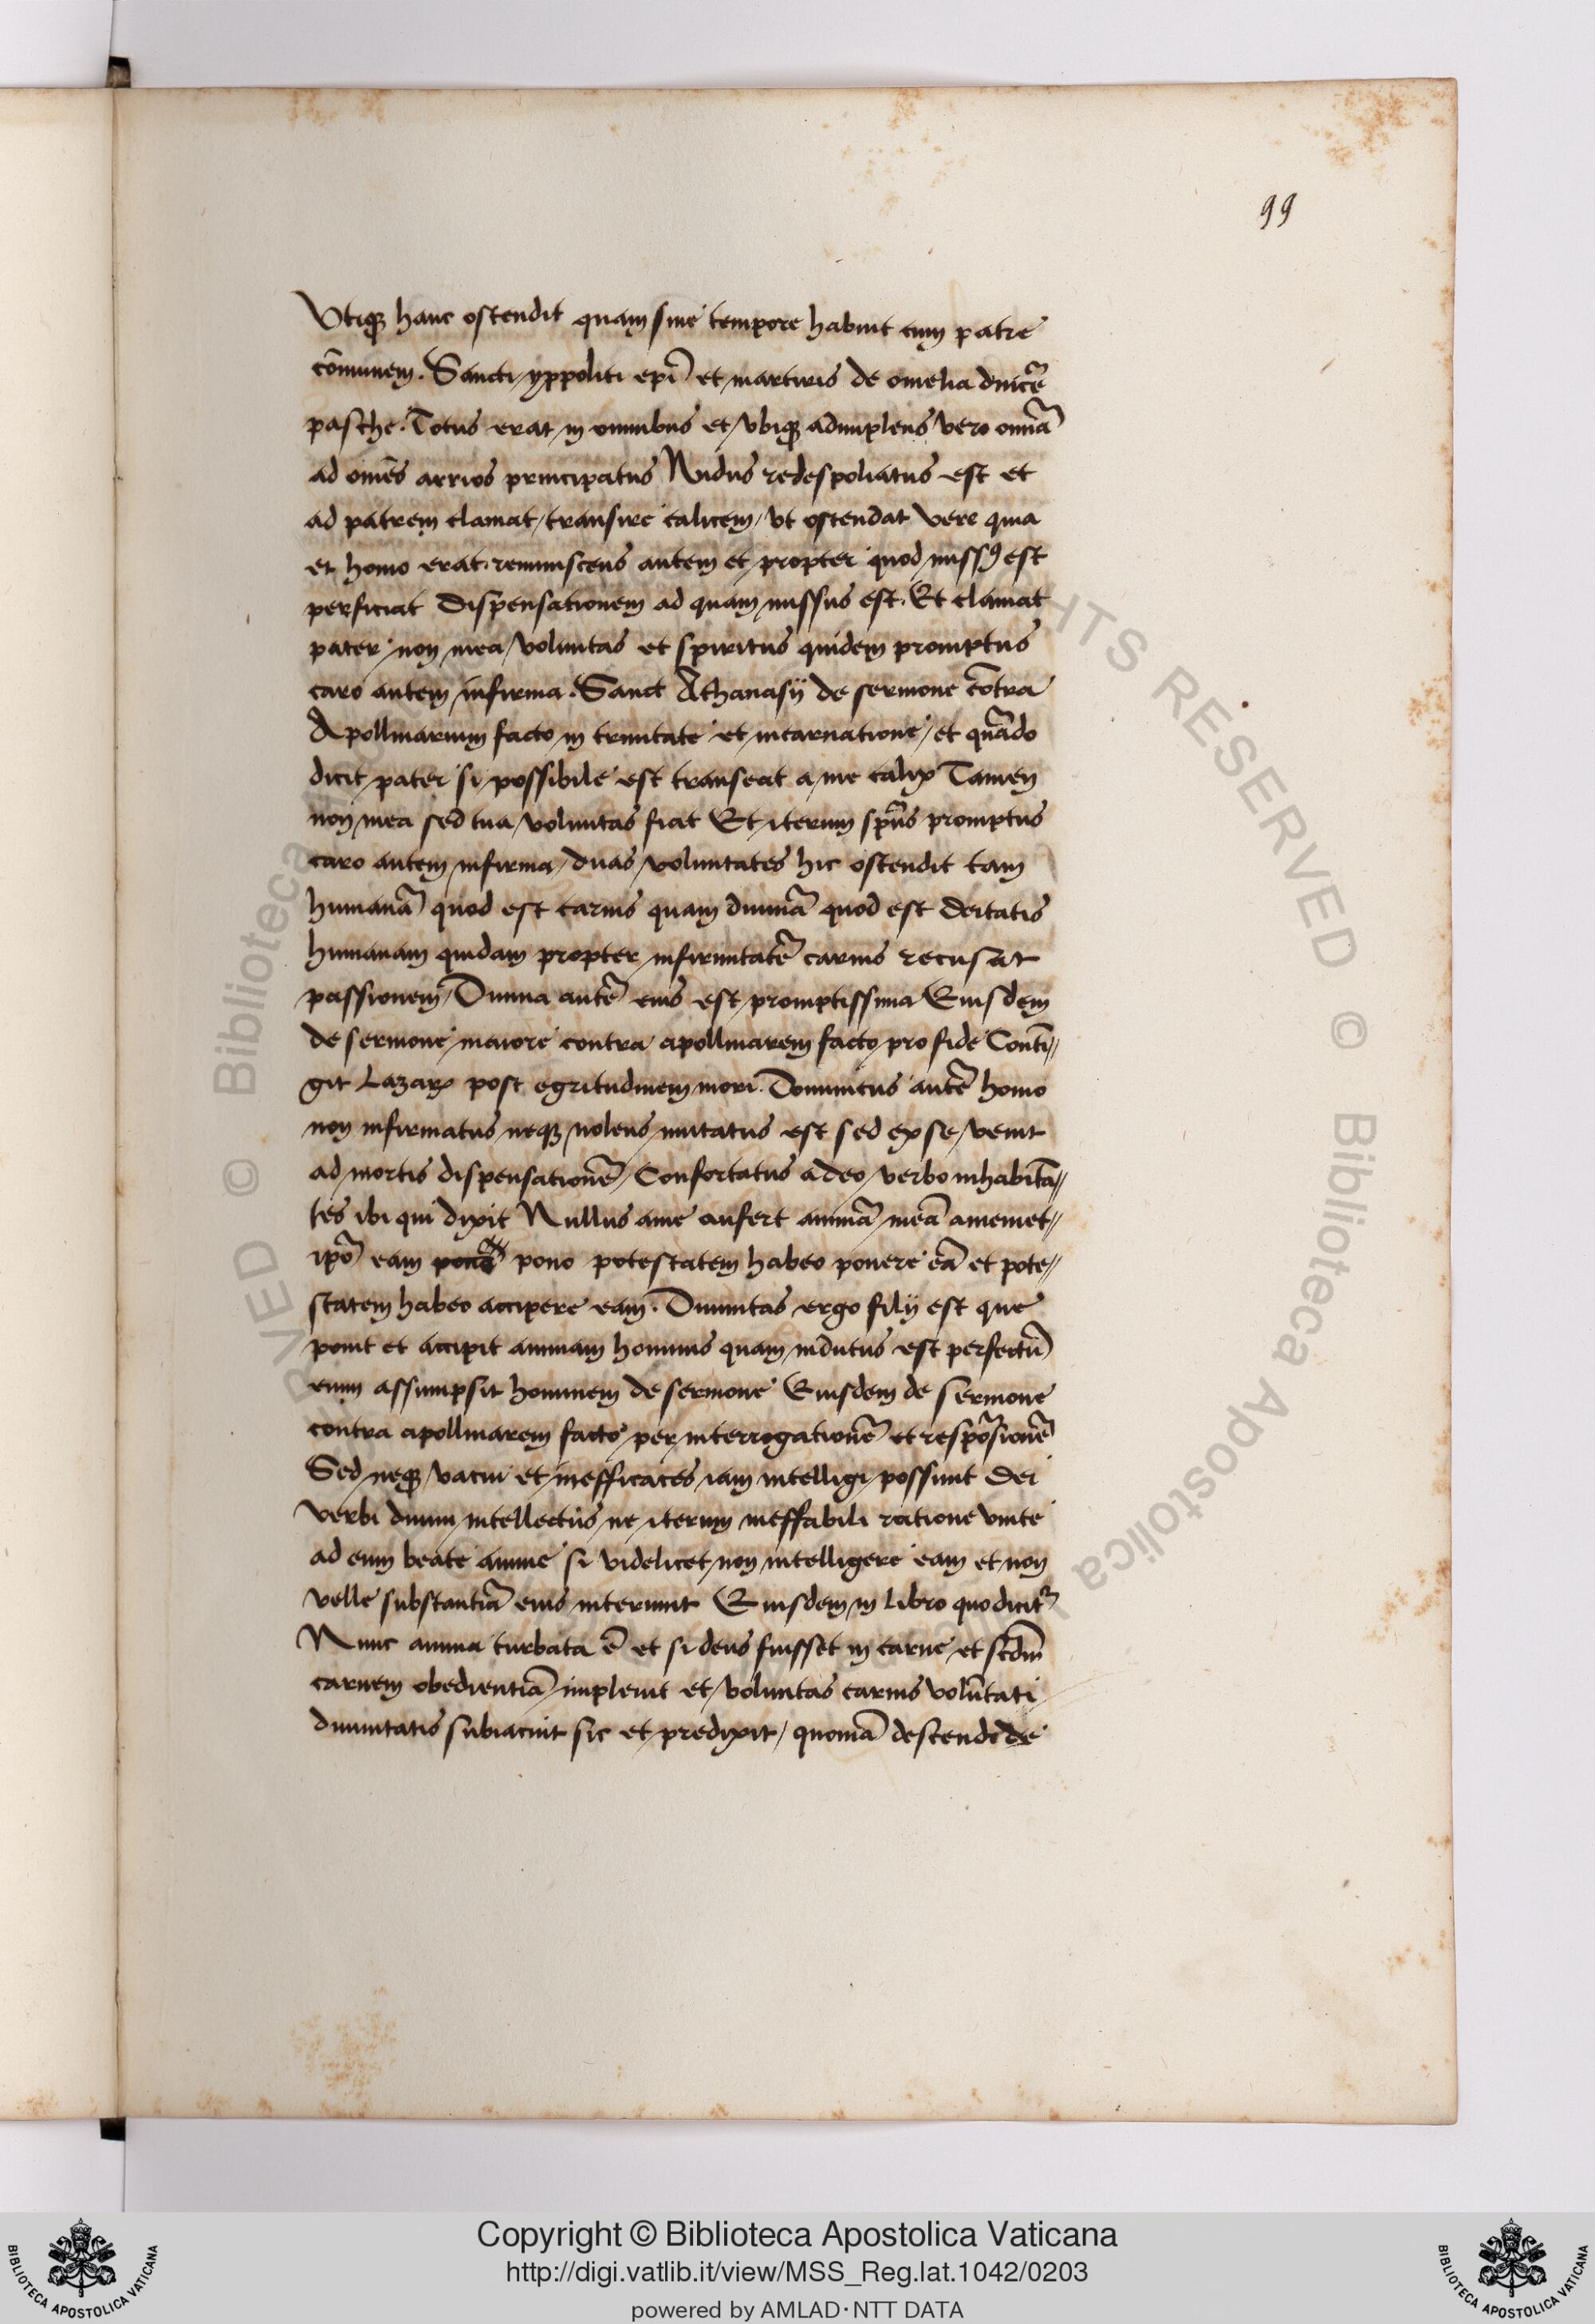 99
Vtiqꝫ hanc ostendit quam sine tempore habuit cum patre
cōmunem. Sancti yppoliti epī et martiris de omelia dnicē
pasche. Totus erat in omnibus et vbiqꝫ adimplens vero omnā
ad omēs arrios principatus Nudus redespoliatus est et
ad patrem clamat / transire calicem / vt ostendat vere quia
et homo erat. reminiscens autem et propter quod missꝰ est
perficiat dispensationem ad quam missus est. Et clamat
pater non mea voluntas et spiritus quidem promptus
caro autem infirma. Sanct Athanasij de sermone cōtra
Apollinarium facto in trinitate et incarnatione / et quādo
dicit pater si possibile est transeat a me calix Tamen
non mea sed tua voluntas fiat Et iterum spūs promptus
caro autem infirma / duas voluntates hic ostendit tam
humanā quod est carnis quam diuinā quod est deitatis
humanam quidam propter infirmitatē carnis recusat
passionem / Diuina autē eius est promptissima Eiusdem
de sermone maiore contra apollinarem facto pro fide Contī//
git Lazarꝫ post egritudinem mori. Dominicus autē homo
non infirmatus neqꝫ nolens mutatus est sed ex se venit
ad mortis dispensationē / Confortatus a deo verbo inhabitā//
tes ibi qui dixit Nullus ame aufert animā meā amemet//
ipō eam pono potestatem habeo ponere eā et pote//
statem habeo accipere eam. Diuinitas ergo filij est que
ponit et accipit animam hominis quam indutus est perfectū
enim assumpsit hominem de sermone Eiusdem de sermone
contra apollinarem facto per interrogationē et respōsionē
Sed neqꝫ vacui et inefficaces iam intelligi possunt dei
verbi diuini intellectus ne iterum ineffabili ratione vnite
ad eum beate anime si videlicet non intelligere eam et non
velle substantiā eius interimit Eiusdem in libro quo dicitꝰ
Nunc anima turbata ē et si deus fuisset in carne et scdm̄
carnem obedientiā impleuit et voluntas carnis volūtati
diuinitatis subiacuit sic et predixit / quoniā descendi de
© Biblioteca Apostolica Vaticana
RIGHTS RESERVED © Biblioteca Apostolica
BIBLIOTECA APOSTOLICA VATICANA
Copyright © Biblioteca Apostolica Vaticana
http://digi.vatlib.it/view/MSS_Reg.lat.1042/0203
powered by AMLAD·NTT DATA
BIBLIOTECA APOSTOLICA VATICANA